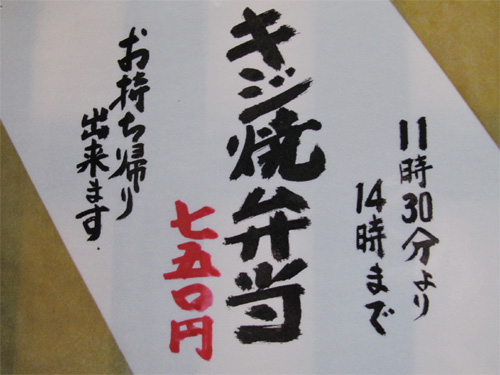 11時30分より
14時まで
キジ焼弁当
七五〇円
お持ち帰り
出来ます.